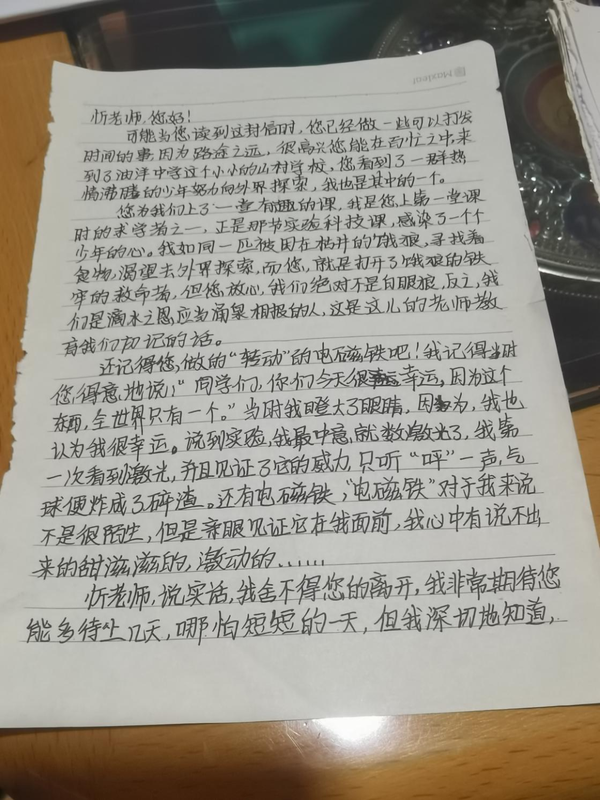 Maxleaf
忻老师,您好!
可能当您读到这封信时,您已经做一些可以打发
时间的事,因为路途之远,很高兴您能在百忙之中来
到了油洋中学这个小小的山村学校,您看到了一群热
情沸腾的少年努力向外界探索,我也是其中的一个。
您为我们上了一堂有趣的课,我是您上第一堂课
时的求学者之一,正是那节实验科技课,感染了一个个
少年的心。我如同一匹被困在枯井的饿狼,寻找着
食物,渴望去外界探索,而您,就是打开了饿狼的铁
牢的救命者,但您放心,我们绝对不是白眼狼,反之,我
们是滴水之恩应当涌泉相报的人,这是这儿的老师教
育我们切记的话。
还记得您,做的“转动”的电磁铁吧!我记得当时
您,得意地说,“同学们,你们今天很幸运,因为这个
东西,全世界只有一个。”当时我瞪大了眼睛,因为,我也
认为我很幸运。说到实验,我最中意,就数激光了,我第
一次看到激光,并且见证了它的威力,只听“呯”一声,气
球便炸成了碎渣。还有电磁铁,“电磁铁”对于我来说
不是很陌生,但是亲眼见证它在我面前,我心中有说不出
来的甜滋滋的,激动的......
忻老师,说实话,我舍不得您的离开,我非常期待您
能多待上几天,哪怕短短的一天,但我深切地知道,